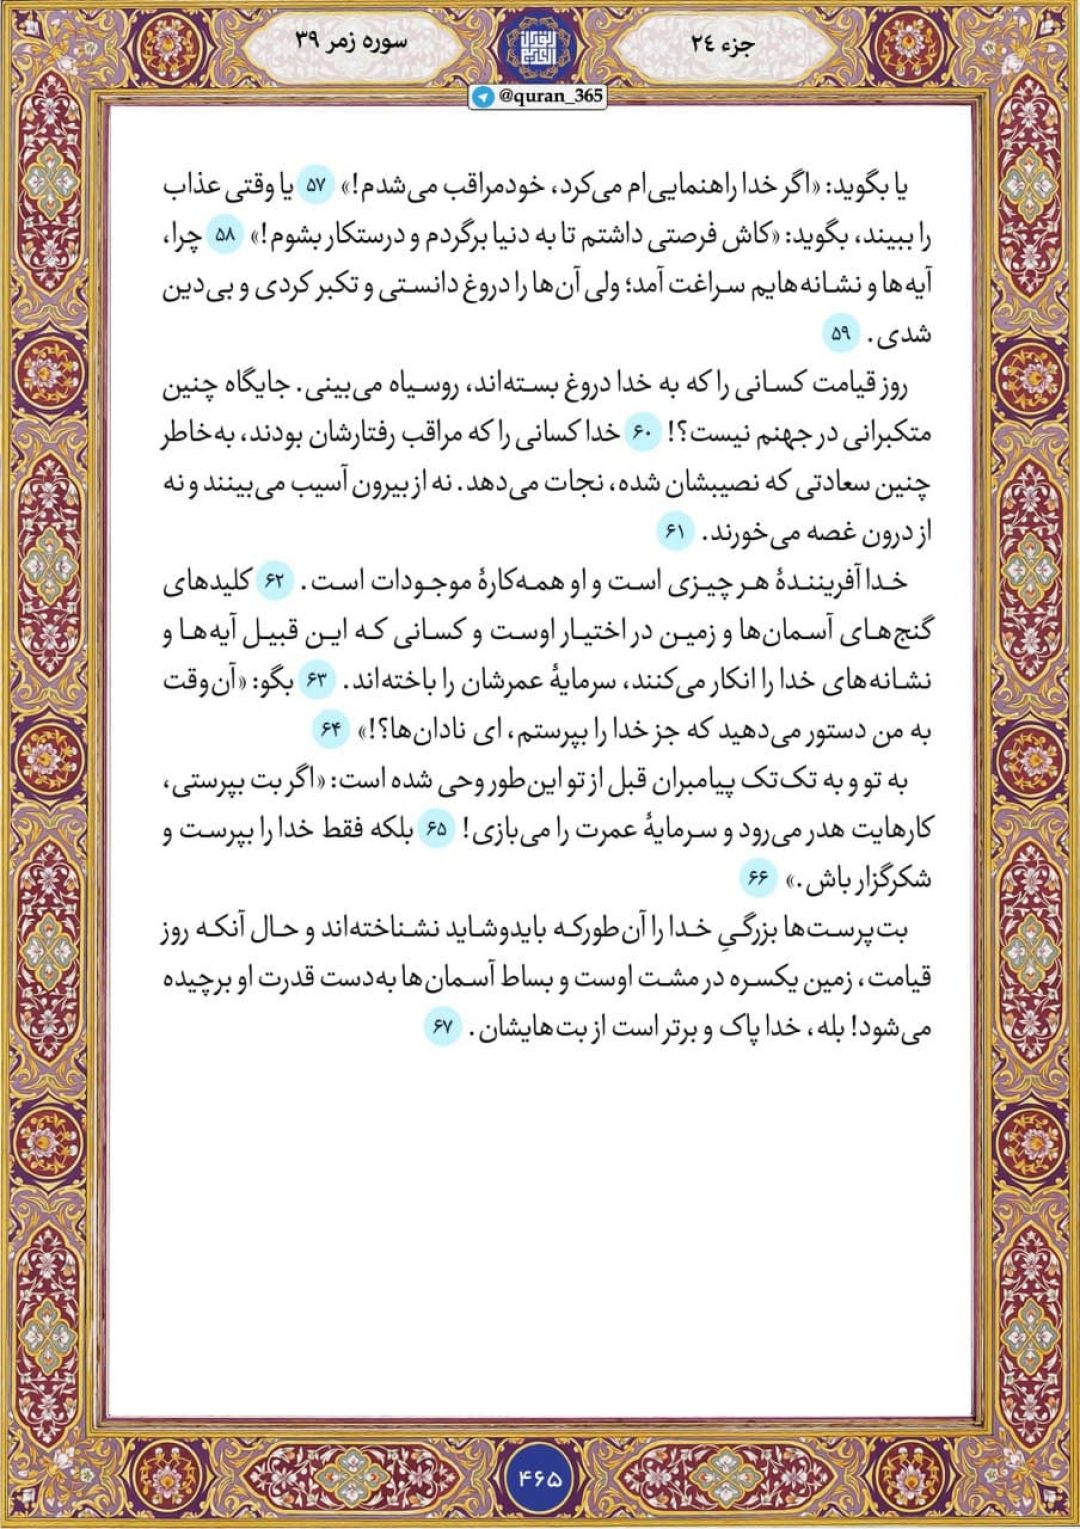 جزء ٢٤
القرآن الکریم
سوره زمر ٣٩
@quran_365
یا بگوید: «اگر خدا راهنمایی‌ام می‌کرد، خودمراقب می‌شدم!» ۵۷ یا وقتی عذاب
را ببیند، بگوید: «کاش فرصتی داشتم تا به دنیا برگردم و درستکار بشوم!» ۵۸ چرا،
آیه‌ها و نشانه‌هایم سراغت آمد؛ ولی آن‌ها را دروغ دانستی و تکبر کردی و بی‌دین
شدی. ۵۹
روز قیامت کسانی را که به خدا دروغ بسته‌اند، روسیاه می‌بینی. جایگاه چنین
متکبرانی در جهنم نیست؟! ۶۰ خدا کسانی را که مراقب رفتارشان بودند، به‌خاطر
چنین سعادتی که نصیبشان شده، نجات می‌دهد. نه از بیرون آسیب می‌بینند و نه
از درون غصه می‌خورند. ۶۱
خدا آفرینندهٔ هر چیزی است و او همه‌کارهٔ موجودات است. ۶۲ کلیدهای
گنج‌های آسمان‌ها و زمین در اختیار اوست و کسانی که این قبیل آیه‌ها و
نشانه‌های خدا را انکار می‌کنند، سرمایهٔ عمرشان را باخته‌اند. ۶۳ بگو: «آن‌وقت
به من دستور می‌دهید که جز خدا را بپرستم، ای نادان‌ها؟!» ۶۴
به تو و به تک‌تک پیامبران قبل از تو این‌طور وحی شده است: «اگر بت بپرستی،
کارهایت هدر می‌رود و سرمایهٔ عمرت را می‌بازی! ۶۵ بلکه فقط خدا را بپرست و
شکرگزار باش.» ۶۶
بت‌پرست‌ها بزرگیِ خدا را آن‌طورکه بایدوشاید نشناخته‌اند و حال آنکه روز
قیامت، زمین یکسره در مشت اوست و بساط آسمان‌ها به‌دست قدرت او برچیده
می‌شود! بله، خدا پاک و برتر است از بت‌هایشان. ۶۷
۴۶۵